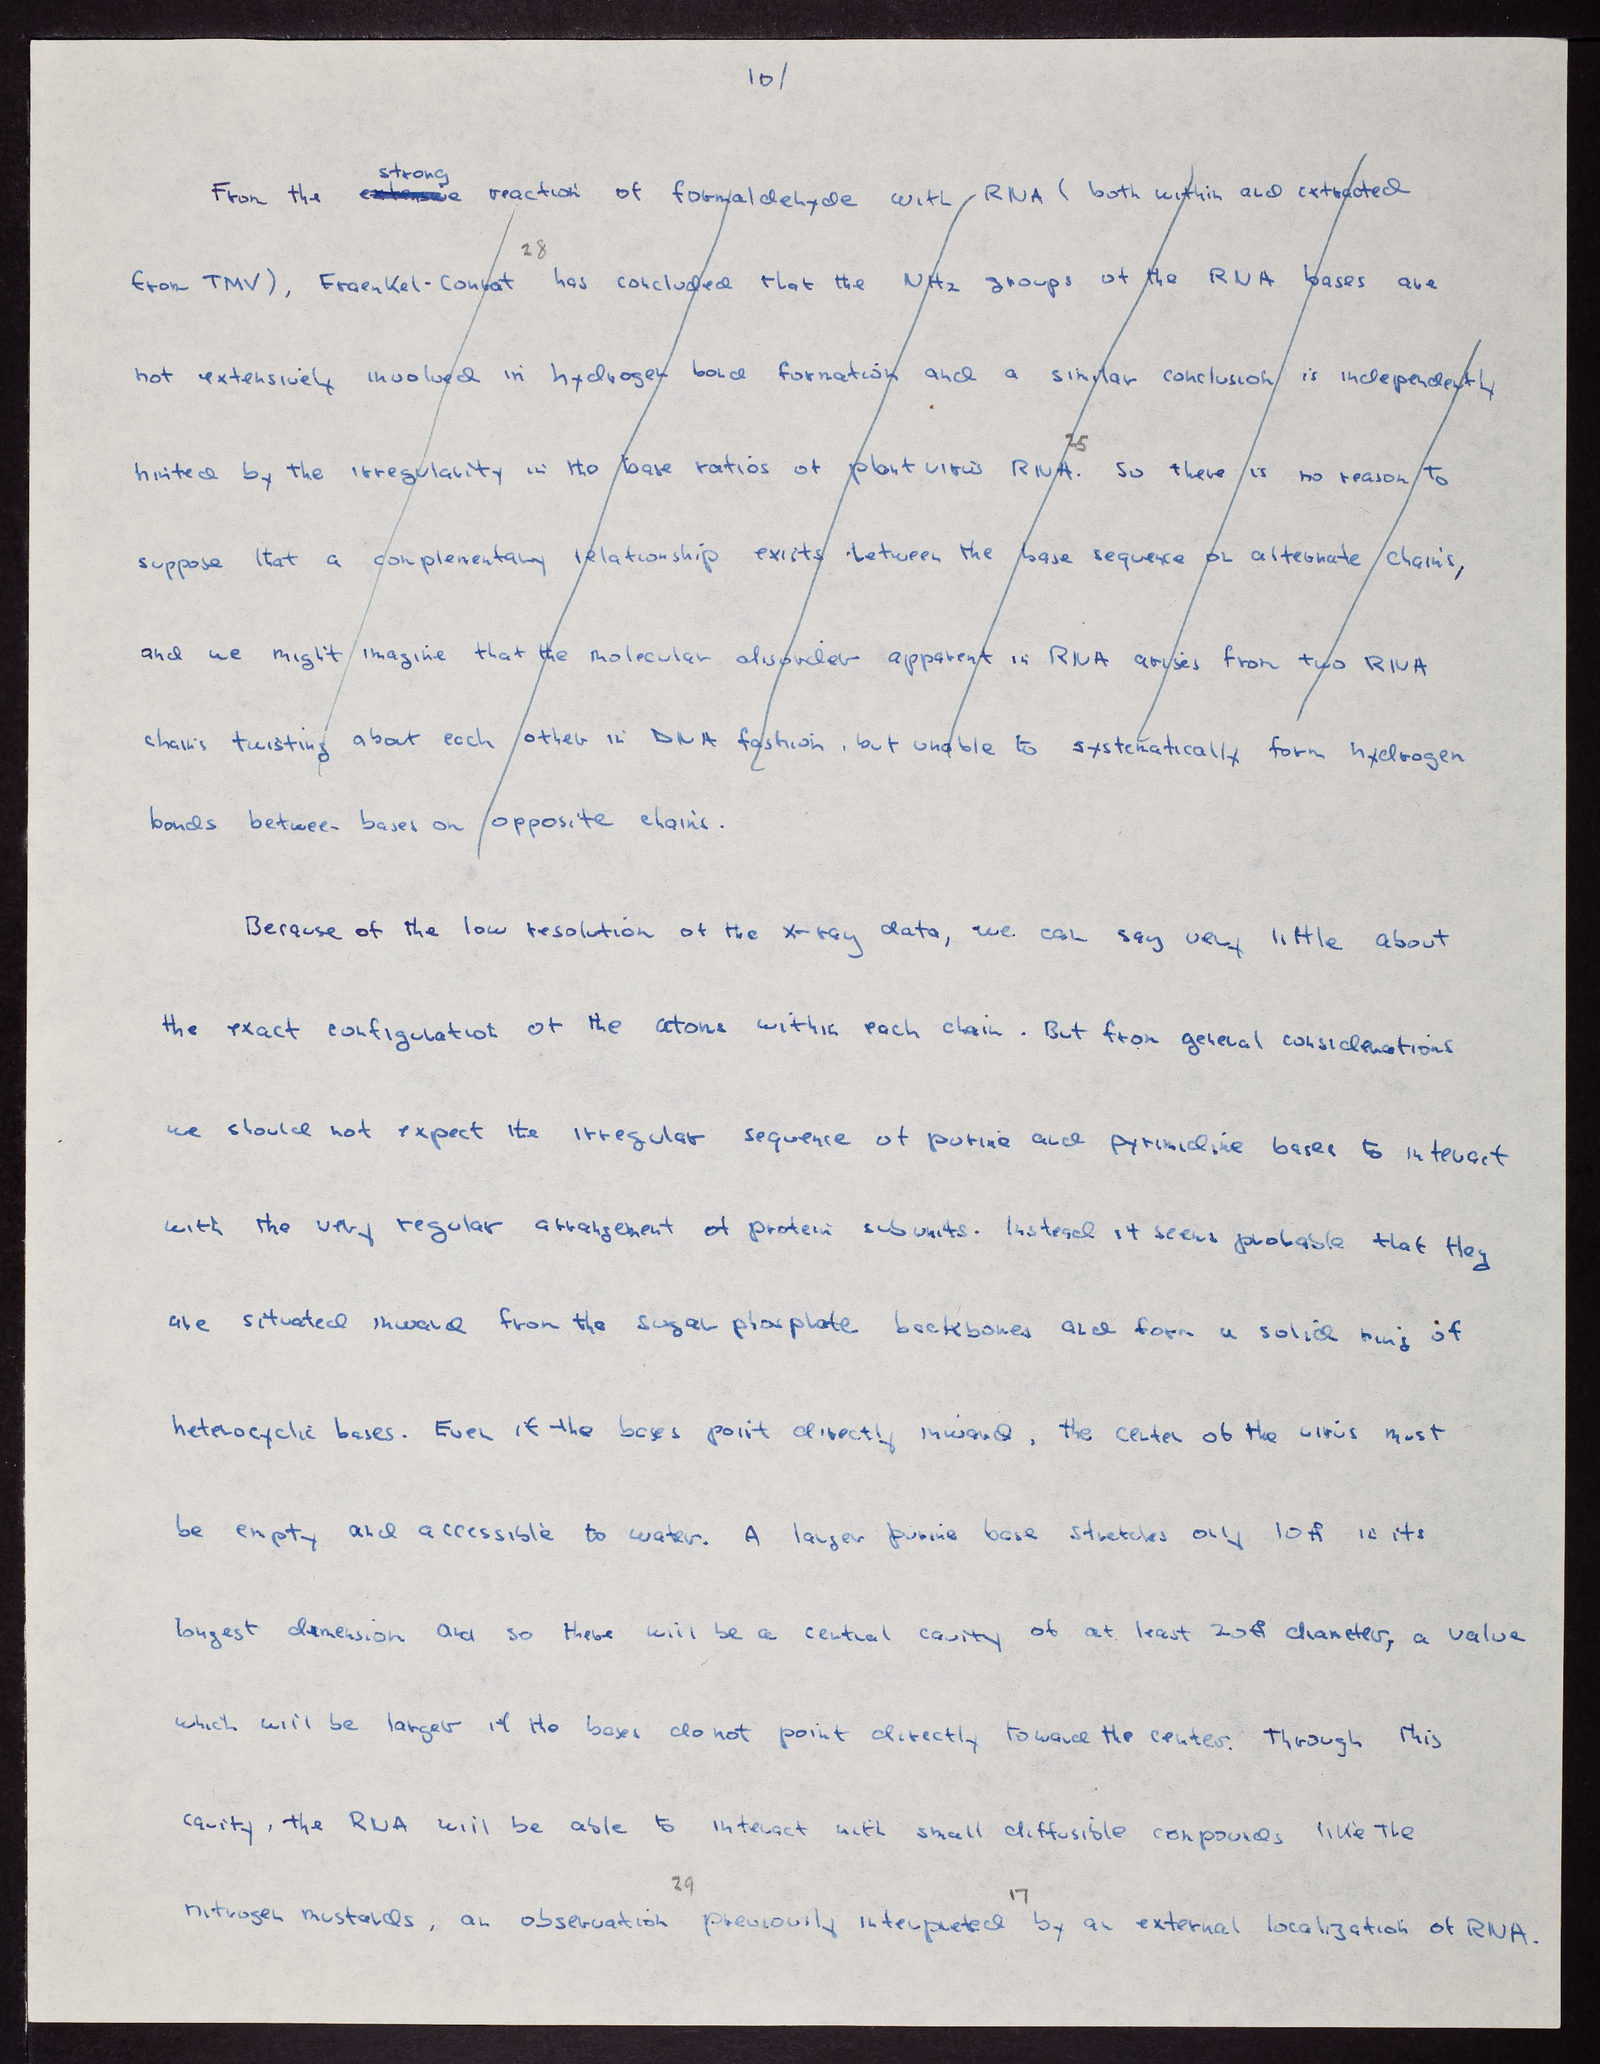 10/
strong
From the extensive reaction of formaldehyde with RNA ( both within and extracted
28
from TMV), Fraenkel-Conrat has concluded that the NH2 groups of the RNA bases are
not extensively involved in hydrogen bond formation and a similar conclusion is independently
25
hinted by the irregularity in the base ratios of plant virus RNA. So there is no reason to
suppose that a complementary relationship exists between the base sequence on alternate chains,
and we might imagine that the molecular disorder apparent in RNA arises from two RNA
chains twisting about each other in DNA fashion, but unable to systematically form hydrogen
bonds between bases on opposite chains.
Because of the low resolution of the x-ray data, we can say very little about
the exact configuration of the atoms within each chain. But from general considerations
we should not expect the irregular sequence of purine and pyrimidine bases to interact
with the very regular arrangement of protein subunits. Instead it seems probable that they
are situated inward from the sugar phosphate backbones and form a solid ring of
heterocyclic bases. Even if the bases point directly inward, the center of the virus must
be empty and accessible to water. A larger purine base stretches only 10Å in its
longest dimension and so there will be a central cavity of at least 20Å diameter, a value
which will be larger if the bases do not point directly toward the center. Through this
cavity, the RNA will be able to interact with small diffusible compounds like the
29 17
nitrogen mustards, an observation previously interpreted by an external localization of RNA.